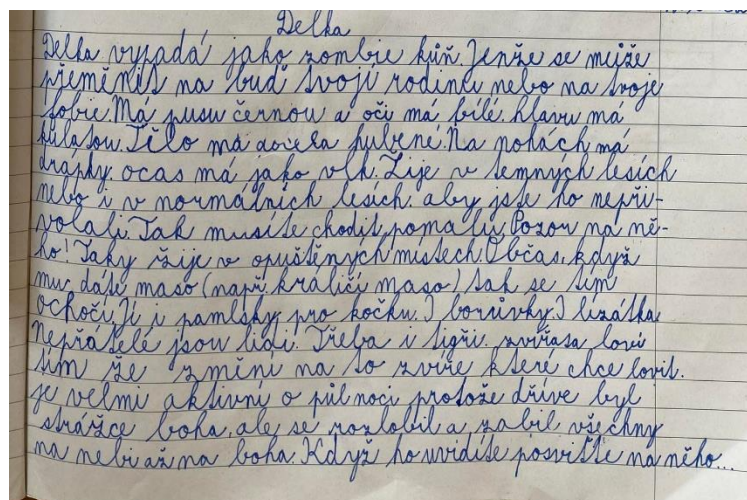 Delka
Delka vypadá jako zombie kůň. Jenže se může
přeměnit na buď tvoji rodinu nebo na tvoje
fobie. Má pusu černou a oči má bílé. hlavu má
kulatou. Tělo má docela hubené. Na nohách má
drápky. ocas má jako vlk. Žije v temných lesích
nebo i v normálních lesích. aby jste ho nepři-
volali. Tak musíte chodit pomalu. Pozor na ně-
ho! Taky žije v opuštěných místech. Občas, když
mu dáte maso (např. králičí maso) tak se tím
ochočí. Jí i pamlsky pro kočku. I borůvky. I lízátka
Nepřátelé jsou lidi. Třeba i tigři. zvířata loví
tím že změní na to zvíře které chce lovit.
je velmi aktivní o půl noci protože dříve byl
strážce boha, ale se rozlobil a zabil všechny
na nebi až na boha. Když ho uvidíte posviťte na něho...